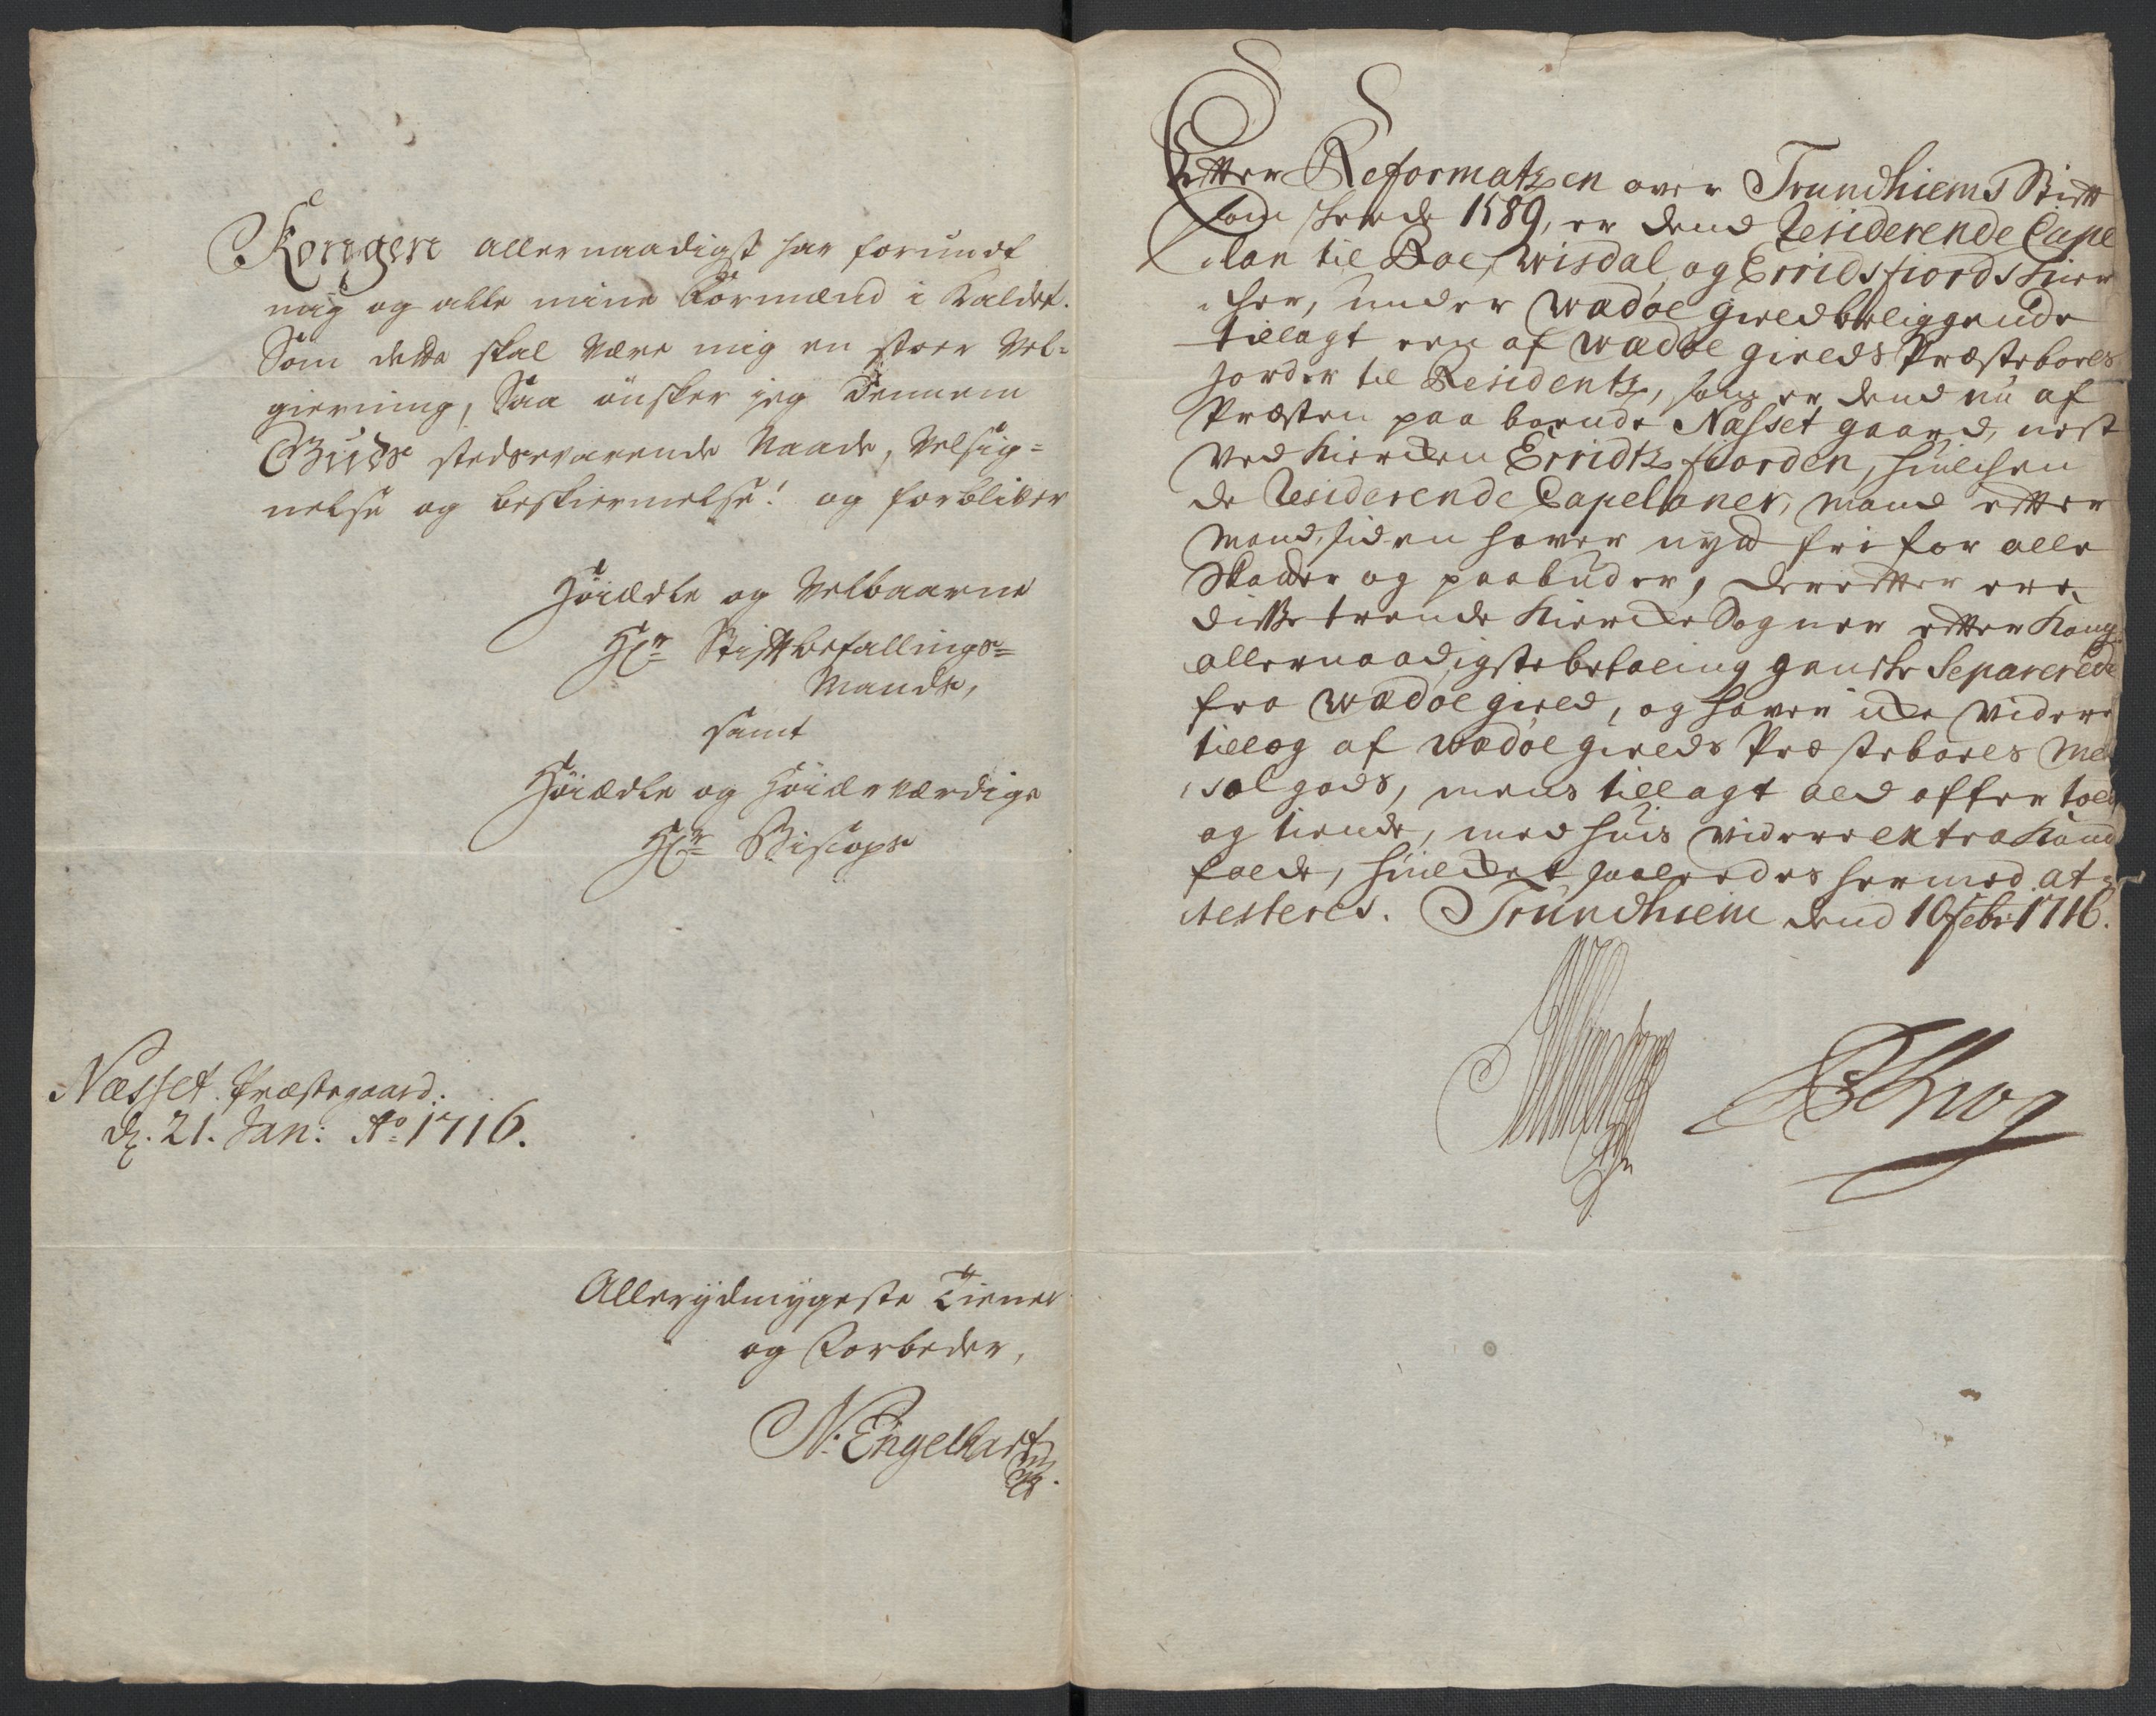 Kongen allernaadigst har forundt
mig og alle mine Formænd i Kaldet.
Som dette skal være mig en stoer Vel-
gierning, Saa ønsker jeg Dennem
Guds stedsevarende Naade, Velsig-
nelse og beskiermelse! og forbliver
Høiædle og Velbaarne
Hr. Stiftbefallings-
Mands,
samt
Høiædle og Høiærværdige
Hr. Biscops
Næsset Præstegaard.
d. 21. Jan: Ao 1716.
Allerydmygeste Tiener
og Forbeder,
N. Engelhart
Effter Reformatzen over Trundhiems Stifft
som skeede 1589, er dend Residerende Cape
lan til Roe, Wisdal, og Erridsfiords Kier
cher, under Wædøe gield beliggende
tillagt een af Wædøe gields Præsteboels
Jorder til Residentz, som er dend nu af
Præsten paa boende Næsset gaard, nest
ved Kierchen Erridtzfiorden, huilchen
de Residerende Capellaner, Mand effter
Mand, siden haver nydt fri for alle
Skatter og paabuder, dereffter ere
disse trende Kierche Sogner effter Kong:
allernaadigste befaling gandske Separerede
fra Wædøe gield, og haver iche videre
tillæg af Wædøe gields Præsteboels Men
salgods, mens tillagt ald offer told
og tiende, med huis videre extra Kand
falde, huilchet saaledes hermed at-
testeres. Trundhiem dend 10 Febr: 1716.
P Krog